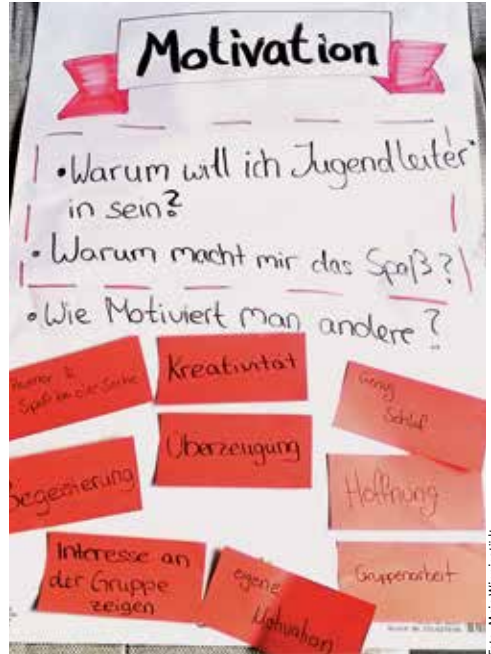 Motivation
• Warum will ich Jugendleiter*
in sein?
• Warum macht mir das Spaß?
• Wie Motiviert man andere?
Humor &
Spaß an der Sache
Kreativität
Genug
Schlaf
Überzeugung
Begeisterung
Hoffnung
Interesse an
der Gruppe
zeigen
eigene
Motivation
Gruppenarbeit